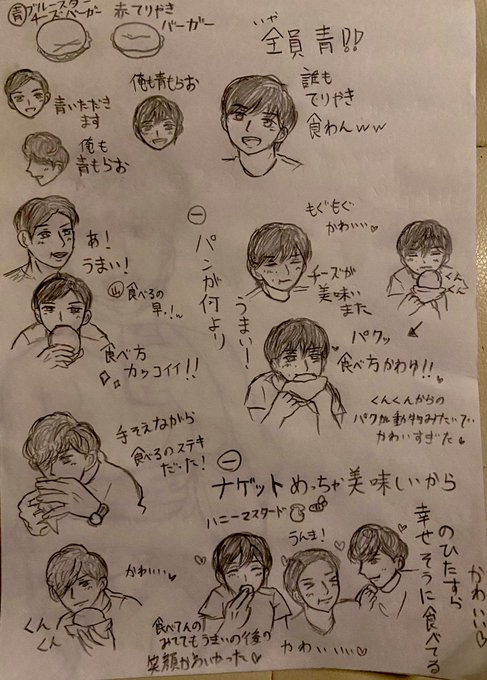 青 ブルースター
チーズバーガー
赤 てりやき
バーガー
いや
全員 青!!
青いただき
ます
俺も青もらお
俺も
青もらお
誰も
てりやき
食わんww
あ!
うまい!
山 食べるの
早っ!
食べ方
カッコイイ!!
㊀
パンが何より
うまい!
もぐもぐ
かわいい
チーズが
美味い
また
くん
くん
パクッ
食べ方かわゆ!!
くんくんからの
パクが動物みたいで
かわいすぎた
手そえながら
食べるのステキ
だった!
㊀
ナゲットめっちゃ美味しいから
ハニーマスタード
うんま!
かわいい
くん
くん
食べてんの
みててもうまいの後の
笑顔かわいかった
かわいいい
のひたすら
幸せそうに食べてる
かわいい